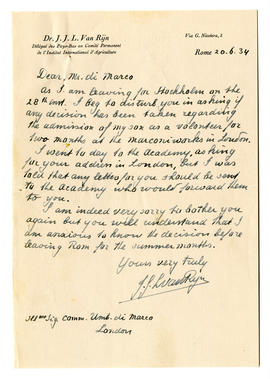 Dr. J. J. L. Van Rijn
Délégué des Pays-Bas au Comité Permanent
de l'Institut International d'Agriculture
Via G. Nicotera, 2
Rome 20.6.34
Dear, Mr. di Marco
As I am leaving for Stockholm on the
28th inst. I beg to disturb you in asking if
any decision has been taken regarding
the admission of my son as a volunteer for
two months at the Marconi works in London.
I went to day to the Academy, asking
for your address in London, but I was
told that any letter for you should be sent
to the Academy who would forward them
to you.
I am indeed very sorry to bother you
again but you will understand that I
am anxious to know the decision before
leaving Rom for the summer months.
Yours very truly
J.J.L. van Rijn
Ill mo Sig. Comm. Umb. di Marco
London